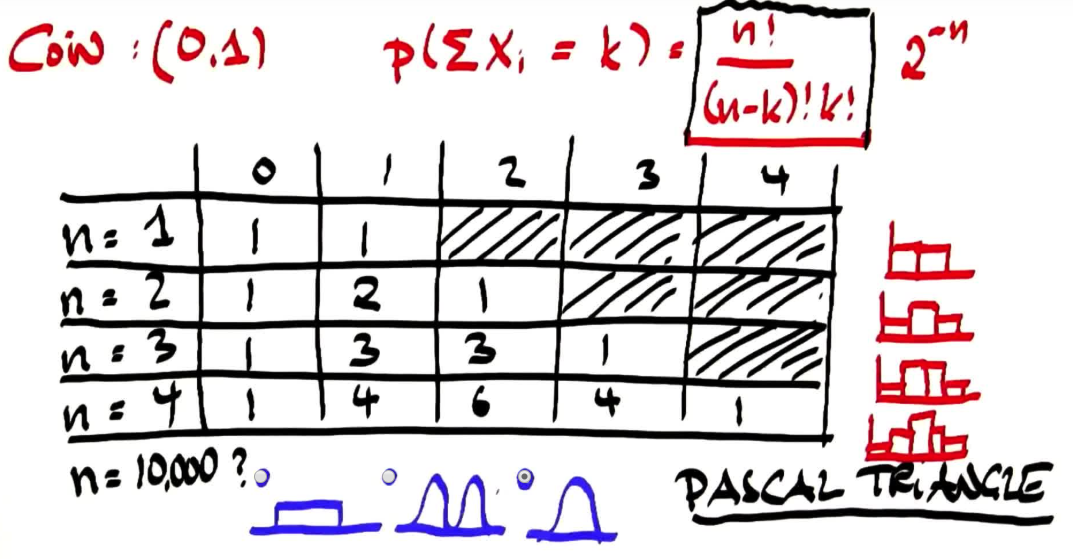 Coin : (0,1) p(Σ Xᵢ = k) = n! / (n-k)! k! 2⁻ⁿ
0 1 2 3 4
n = 1 1 1
n = 2 1 2 1
n = 3 1 3 3 1
n = 4 1 4 6 4 1
n = 10,000 ?
PASCAL TRIANGLE